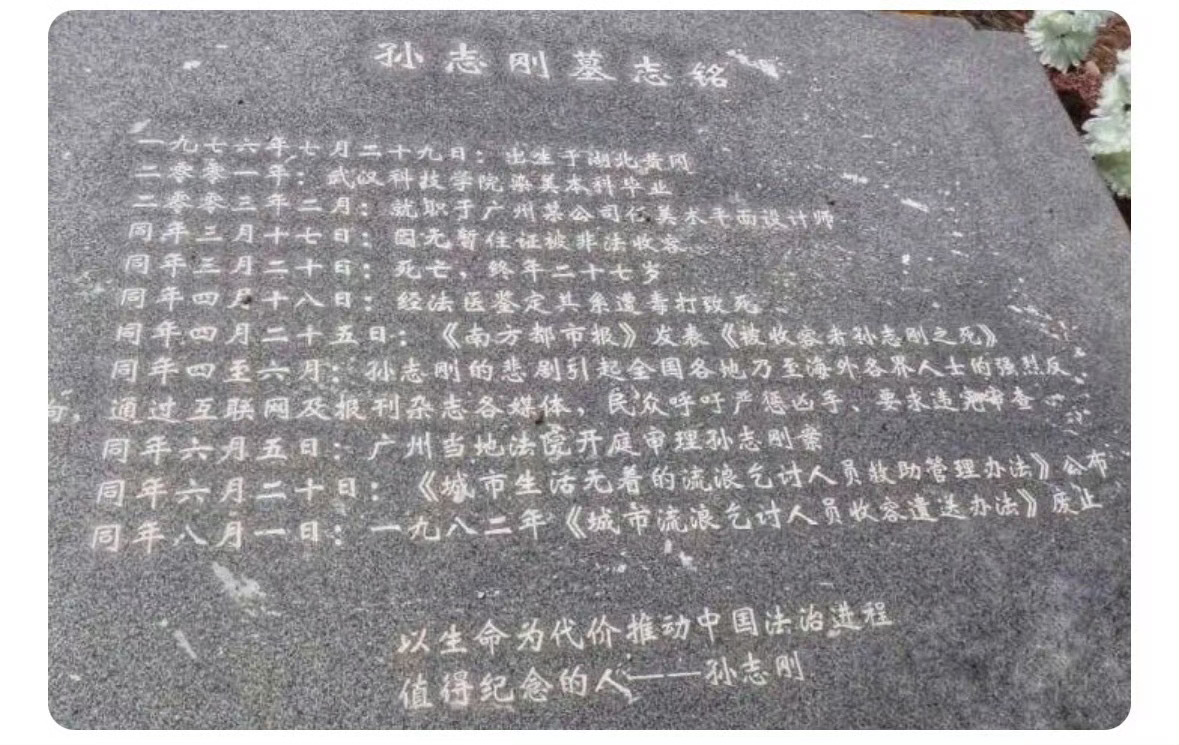 孙志刚墓志铭
一九七六年七月二十九日：出生于湖北黄冈
二零零一年：武汉科技学院染美本科毕业
二零零三年二月：就职于广州某公司任美术平面设计师
同年三月十七日：因无暂住证被非法收容
同年三月二十日：死亡，终年二十七岁
同年四月十八日：经法医鉴定其系遭毒打致死
同年四月二十五日：《南方都市报》发表《被收容者孙志刚之死》
同年四至六月：孙志刚的悲剧引起全国各地乃至海外各界人士的强烈反
响，通过互联网及报刊杂志各媒体，民众呼吁严惩凶手、要求违宪审查
同年六月五日：广州当地法院开庭审理孙志刚案
同年六月二十日：《城市生活无着的流浪乞讨人员救助管理办法》公布
同年八月一日：一九八二年《城市流浪乞讨人员收容遣送办法》废止
以生命为代价推动中国法治进程
值得纪念的人——孙志刚